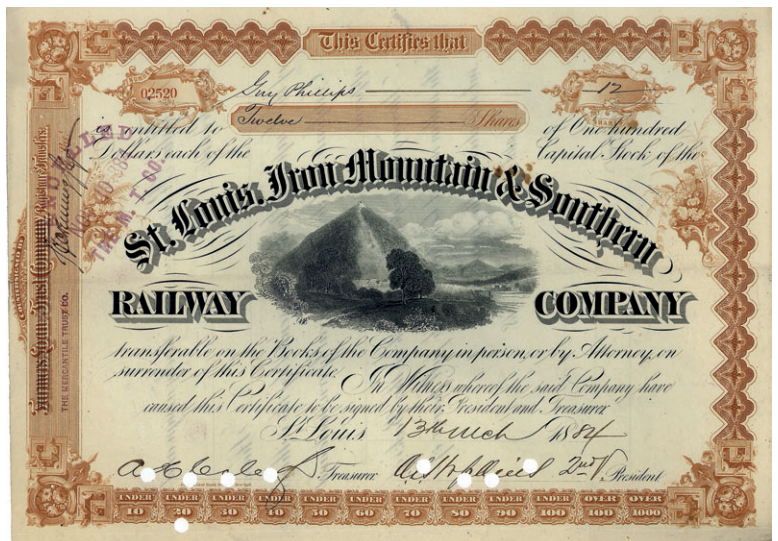 This Certifies that
02520
Guy Phillips
12
SHARES
is entitled to Twelve Shares of One hundred
Dollars each of the Capital Stock of the
St. Louis, Iron Mountain & Southern
RAILWAY COMPANY
transferable on the Books of the Company in person, or by Attorney, on
surrender of this Certificate.
In Witness whereof the said Company have
caused this Certificate to be signed by their President and Treasurer
St Louis 13th Mch 1884
Treasurer
2nd V. President
UNDER 10 UNDER 20 UNDER 30 UNDER 40 UNDER 50 UNDER 60 UNDER 70 UNDER 80 UNDER 90 UNDER 100 OVER 100 OVER 1000
THE MERCANTILE TRUST CO.
CANCELLED
THE M. T. CO.